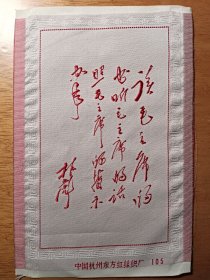 读毛主席的
书听毛主席的话
照毛主席的指示
办事
林彪
中国杭州东方红丝织厂 105